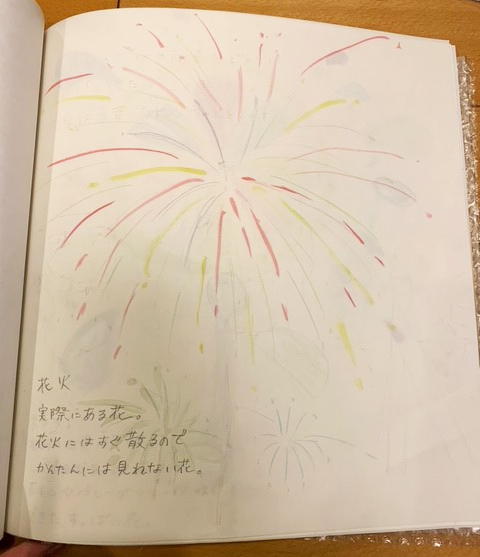 花火
実際にある花。
花火にはすぐ散るので
かんたんには見れない花。